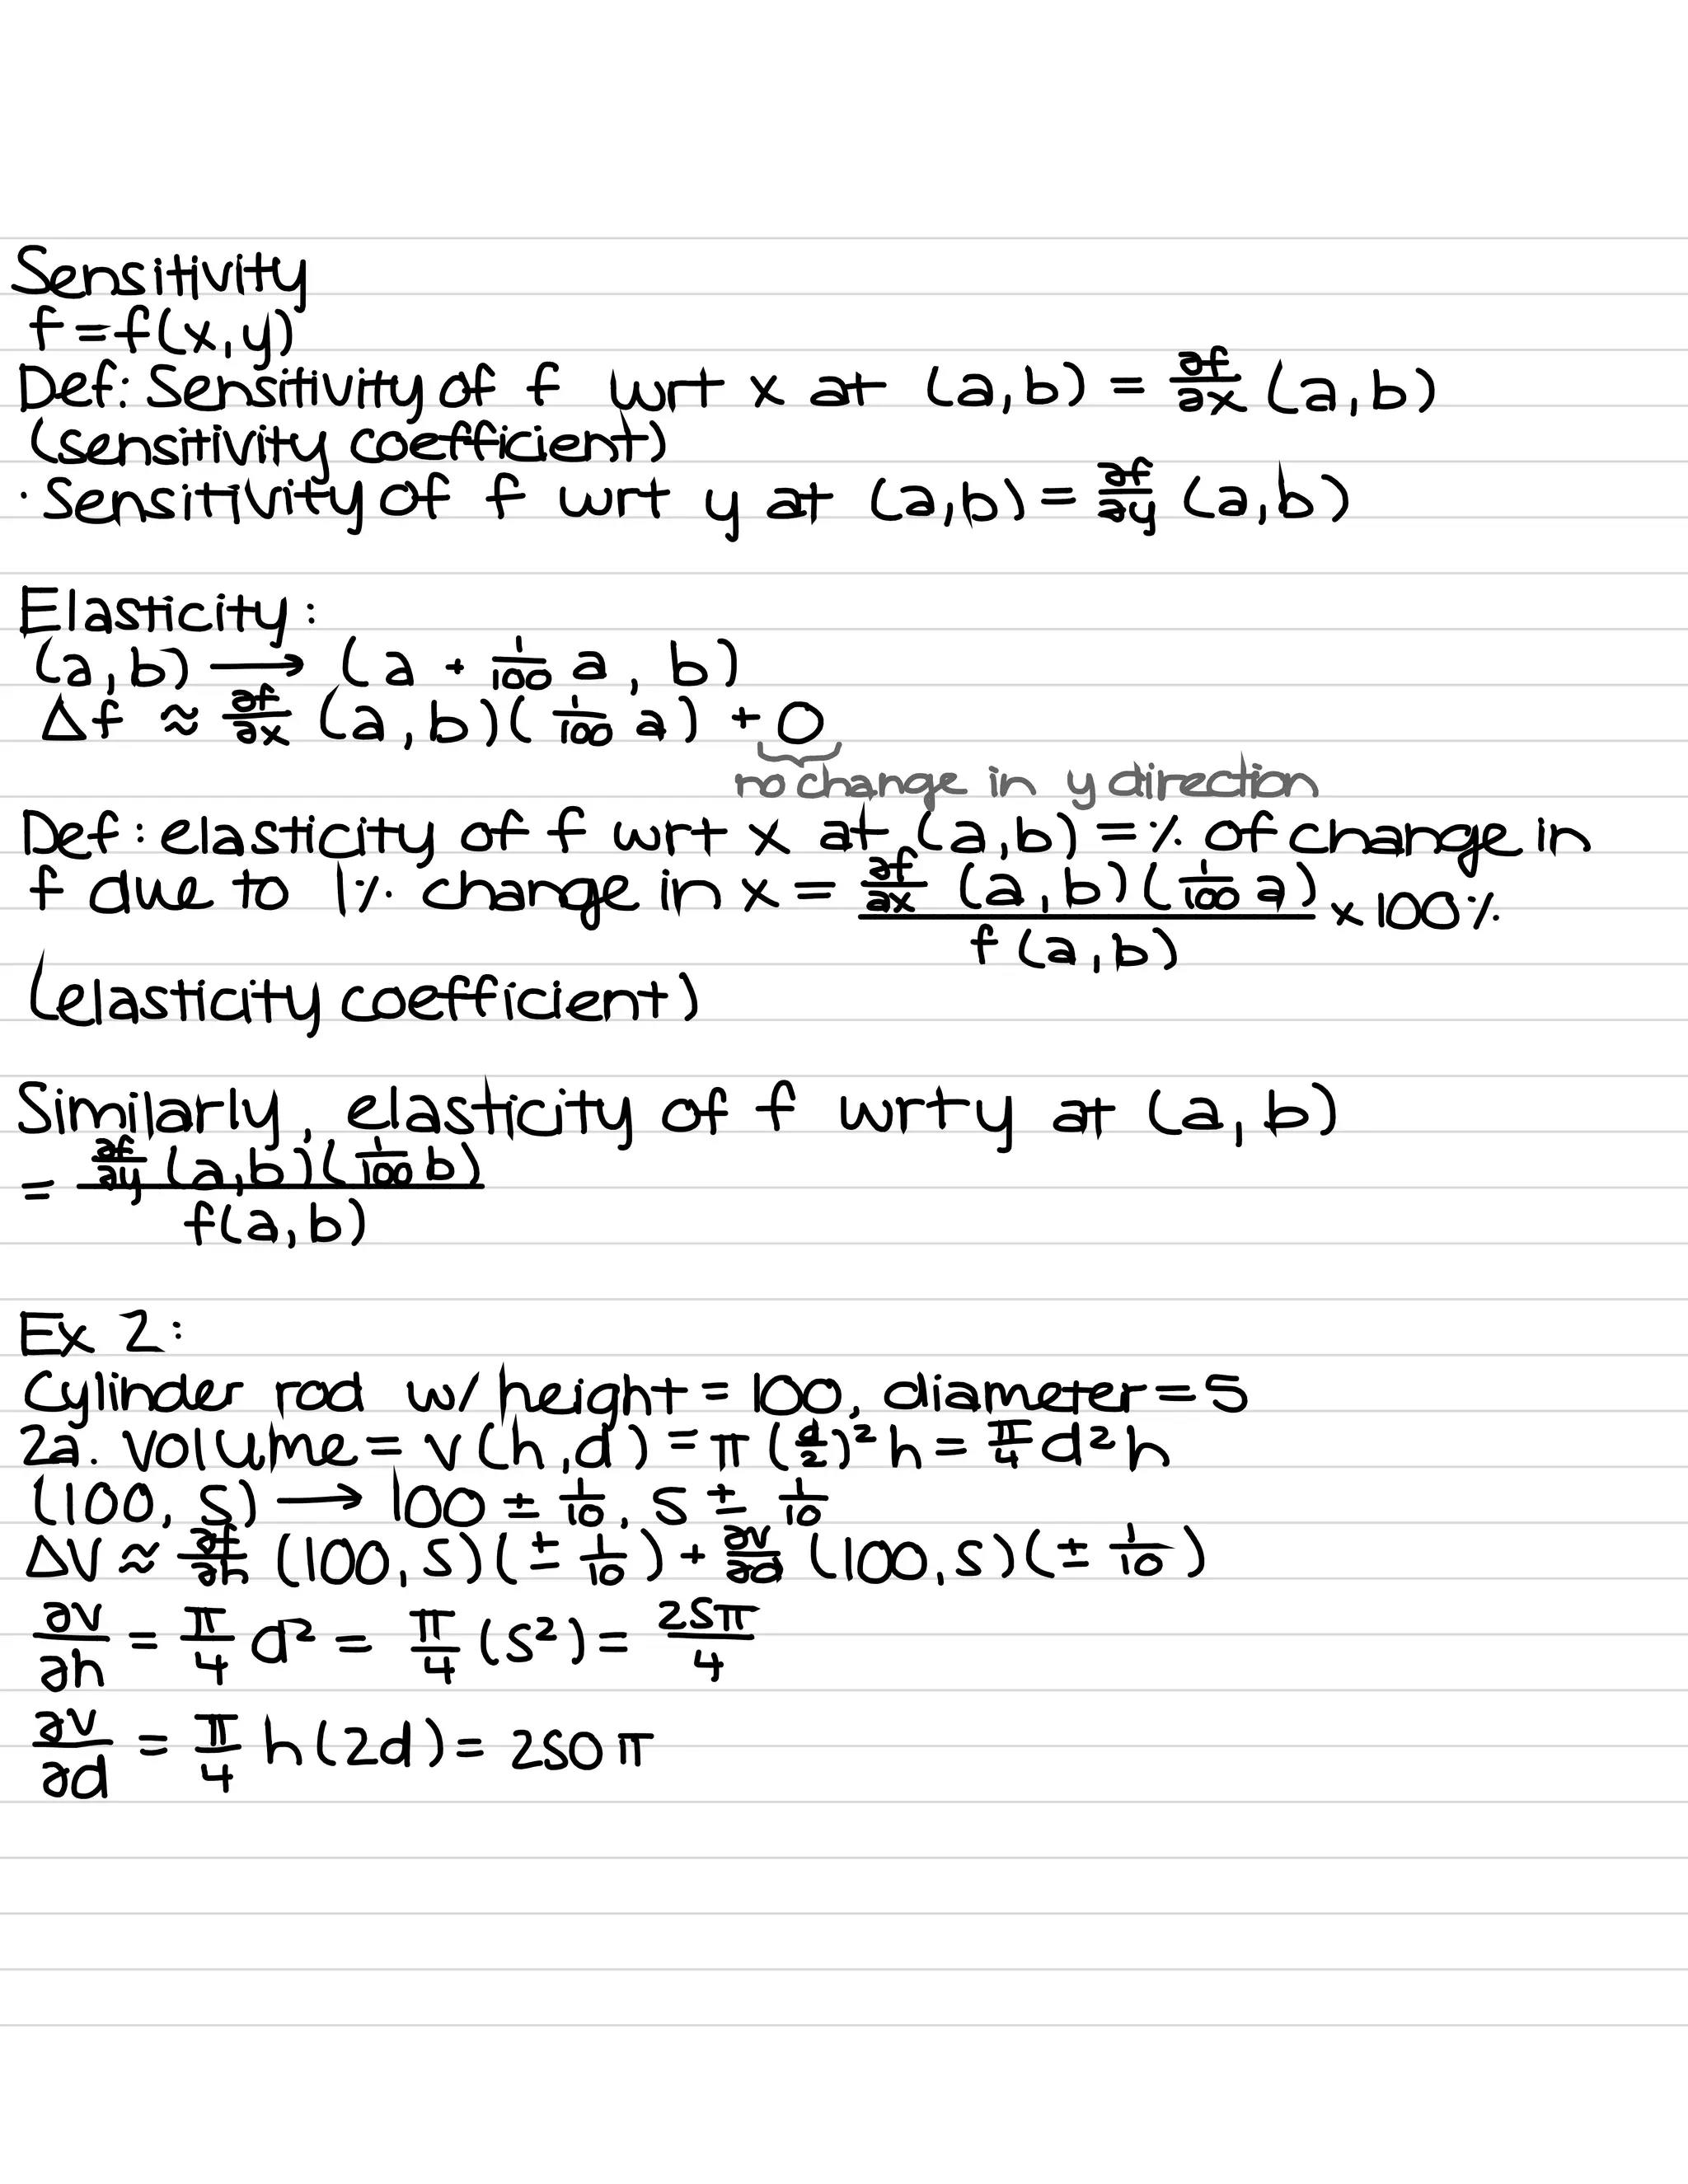 Sensitivity
f = f(x,y)
Def: Sensitivity of f wrt x at (a,b) = ∂f/∂x (a,b)
(sensitivity coefficient)
· Sensitivity of f wrt y at (a,b) = ∂f/∂y (a,b)
Elasticity:
(a,b) → (a + 1/100 a, b)
Δf ≈ ∂f/∂x (a,b)(1/100 a) + 0
no change in y direction
Def: elasticity of f wrt x at (a,b) = % of change in
f due to 1% change in x = ∂f/∂x (a,b)(1/100 a) / f(a,b) x 100%
(elasticity coefficient)
Similarly, elasticity of f wrt y at (a,b)
= ∂f/∂y (a,b)(1/100 b) / f(a,b)
Ex 2:
Cylinder rod w/ height = 100, diameter = 5
2a. volume = v(h,d) = π(d/2)²h = π/4 d²h
(100, 5) → 100 ± 1/10, 5 ± 1/10
ΔV ≈ ∂f/∂h (100,5)(± 1/10) + ∂v/∂d (100,5)(± 1/10)
∂v/∂h = π/4 d² = π/4 (5²) = 25π/4
∂v/∂d = π/4 h(2d) = 250π